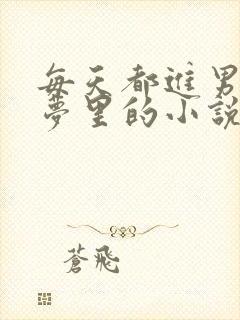 每天都進男
夢里的小說
蒼飛